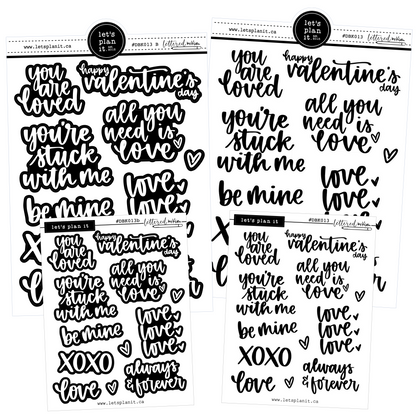 www.letsplanit.ca
let's
plan
it
#DBK013 B
lettered
you
are
loved
happy
valentine's
day
you're
stuck
with me
all you
need is
love
be mine
love
love
XO
www.letsplanit.ca
let's
plan
it
#DBK013
lettered
you
are
loved
happy
valentine's
day
you're
stuck
with me
all you
need is
love
be mine
love
love
let's plan it
#DBK013b
lettered
you
are
loved
happy
valentine's
day
you're
stuck
with me
all you
need is
love
be mine
love
love
love
XOXO
love
always
& forever
www.letsplanit.ca
let's plan it
#DBK013
lettered
you
are
loved
happy
valentine's
day
you're
stuck
with me
all you
need is
love
be mine
love
love
love
XOXO
love
always
& forever
www.letsplanit.ca